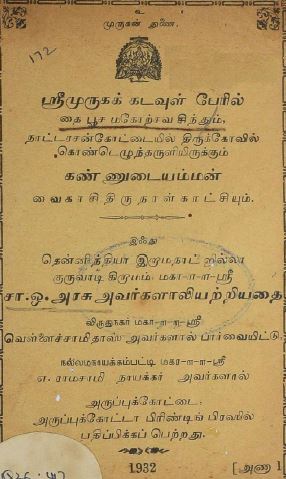 உ
முருகன் துணை.
172
ஸ்ரீமுருகக் கடவுள் பேரில்
தை பூச மகோற்சவ சிந்தும்,
நாட்டரசன்கோட்டையில் திருக்கோவில்
கொண்டெழுந்தருளியிருக்கும்
கண்ணுடையம்மன்
வைகாசிதிருநாள்காட்சியும்.
இஃது
தென்னிந்தியா இராம,நாட்,ஜில்லா
குருவாடி கிராமம், மகா-ா-ா-ஸ்ரீ
சா.ஒ. அரசு அவர்களாலியற்றியதை
விருதுநகர் மகா-ா-ா-ஸ்ரீ
வெள்ளைச்சாமிதாஸ்அவர்களால் பார்வையிட்டு,
நல்லமநாயக்கம்பட்டி மகா-ா-ா-ஸ்ரீ
எ. ராமசாமி நாயக்கர் அவர்களால்
அருப்புக்கோட்டை:
அருப்புக்கோட்டா பிரிண்டிங் பிரஸில்
பதிப்பிக்கப் பெற்றது.
1932 [அணா 1